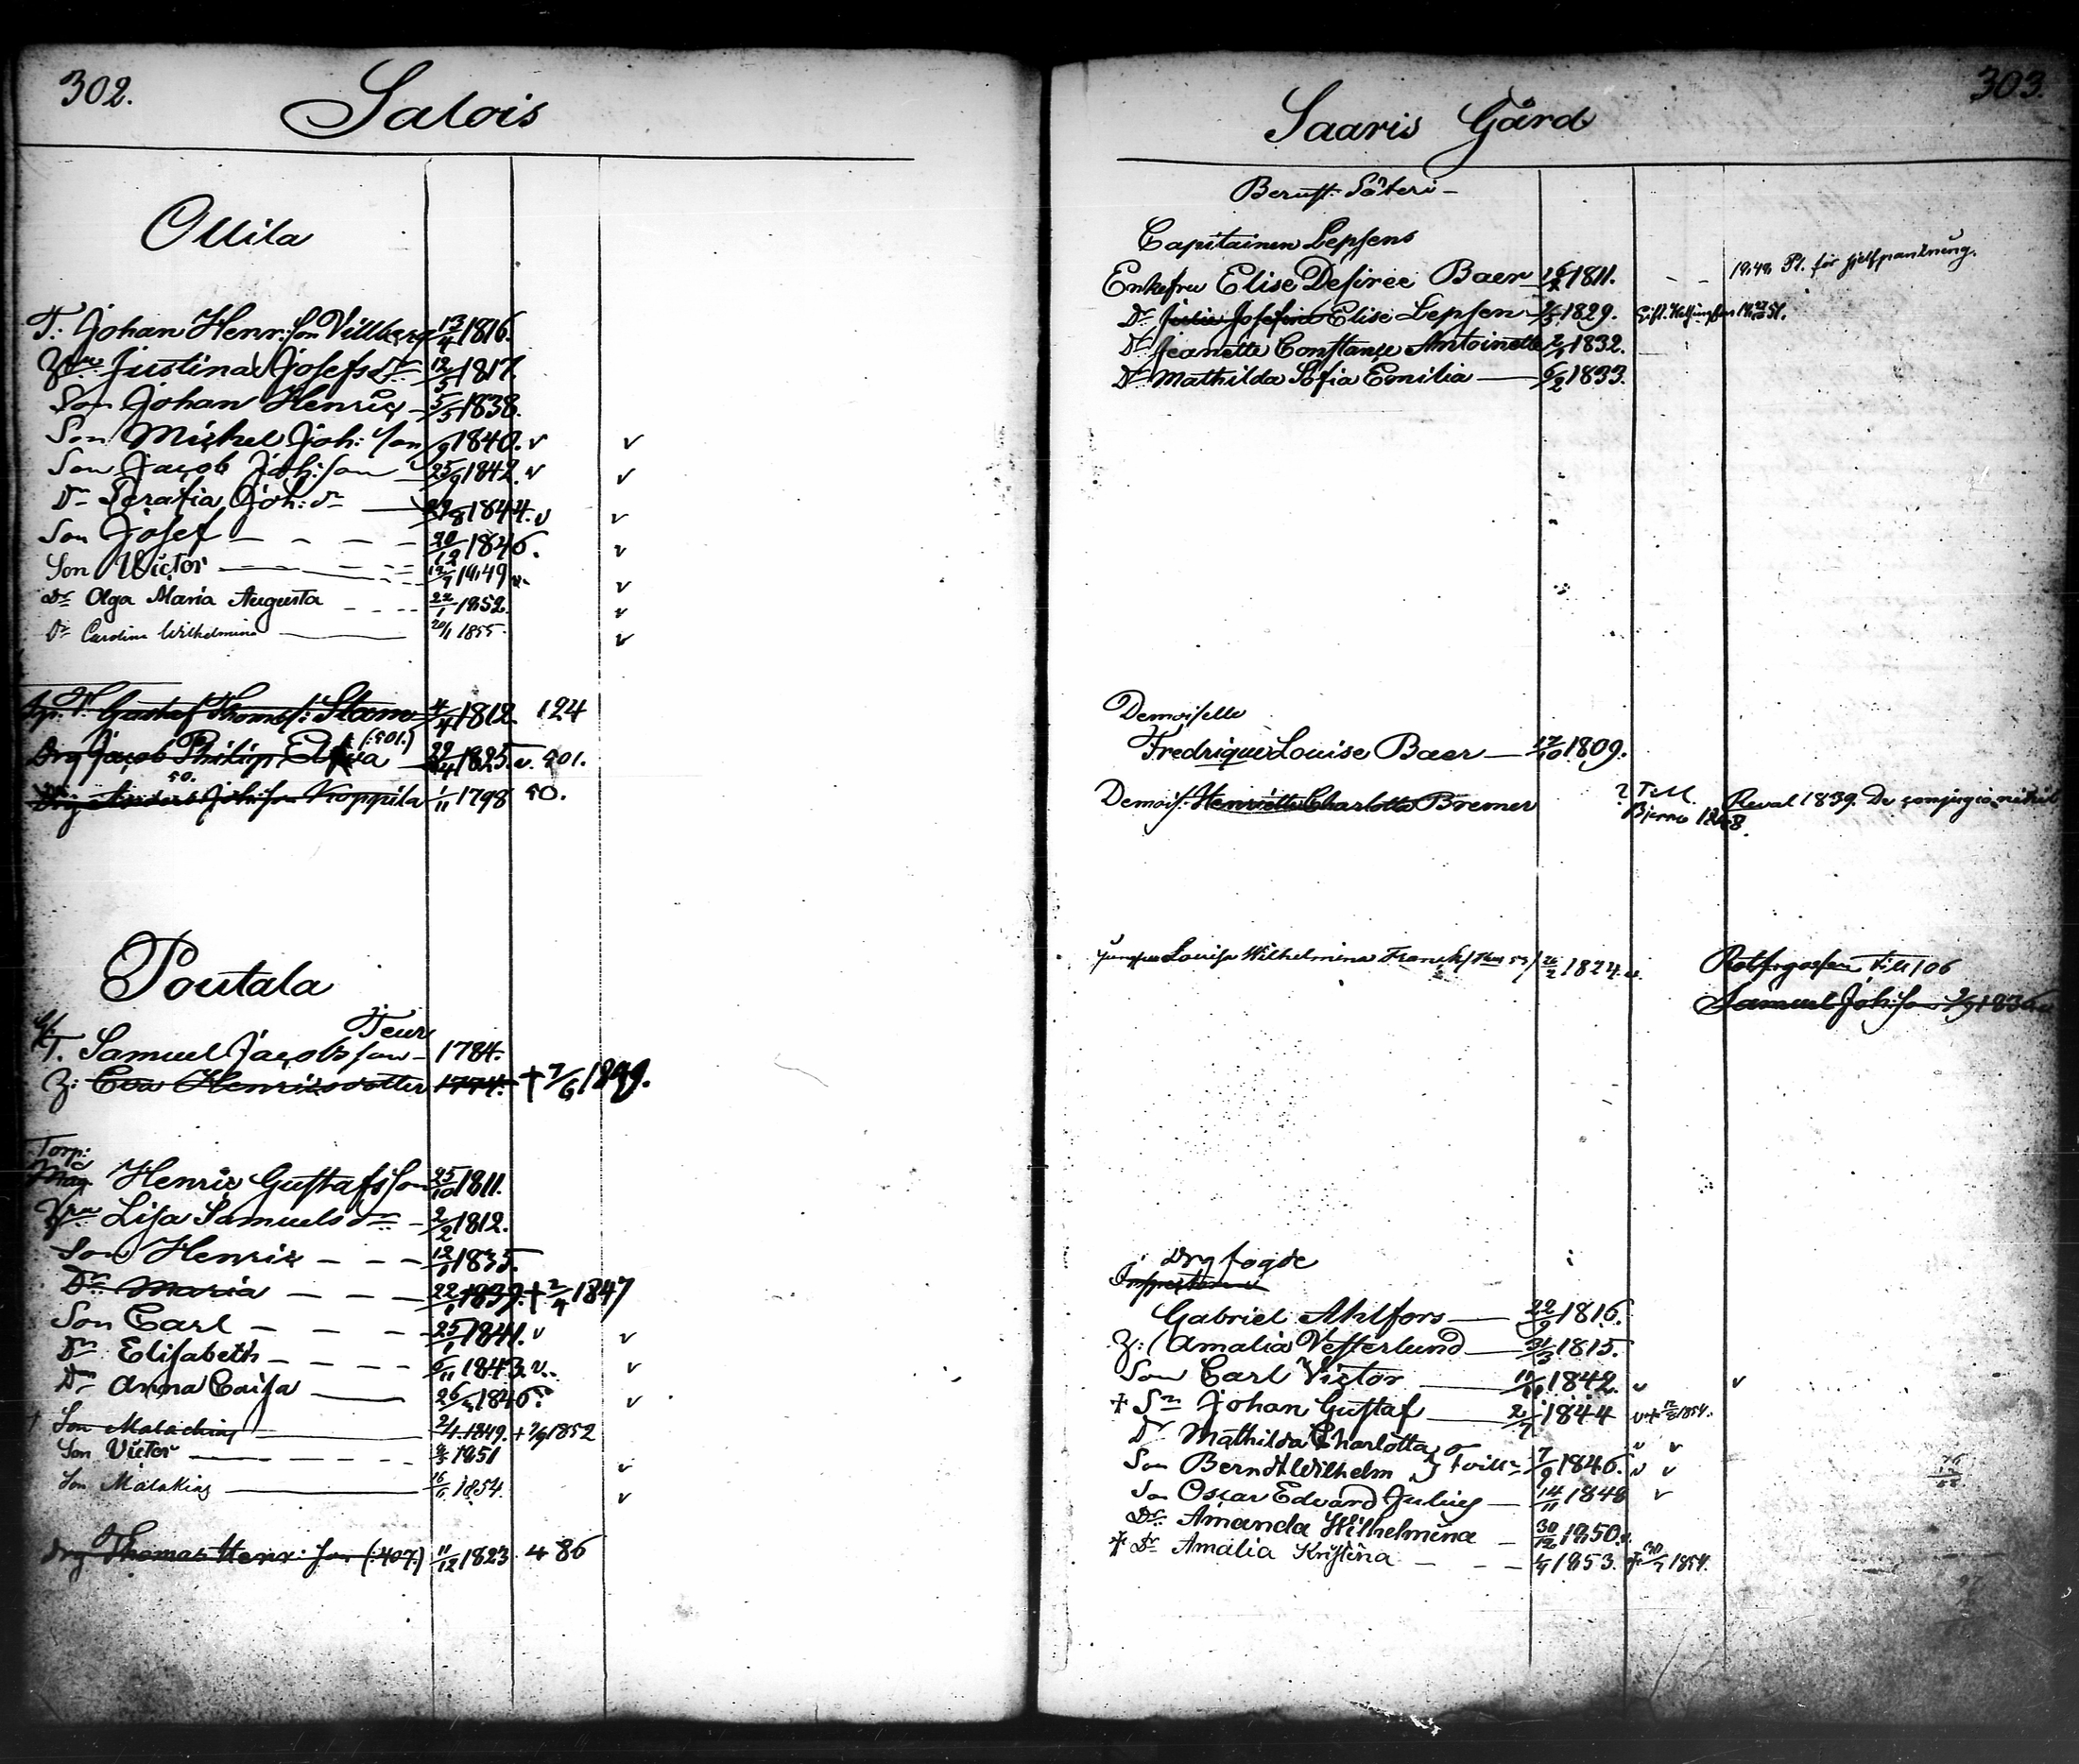 302.
Salois
Ollila
T. Johan Henr: Son Villberg 13/4 1816.
Justina Josefs Dr 12/5 1817.
Son Johan Henric 5/5 1838.
Son Michel Joh: Son /9 1840. v v
Son Jacob Joh: Son 25/9 1842. v v
Dr Serafia Joh: Dr 1844. v v
Son Josef 20/12 1846. v
Son Victor 1849 v
Dr Olga Maria Augusta 24/1 1852. v
Dr Carolina Wilhelmina 20/1 1855. v
T. Gustaf Thomas: 4/4 1812 124
Drg Jacob Philip (:501.) 1825. v. 501.
50.
Drg Anders Johison Koppila 1/11 1798 50.
Poutala
Teur
T. Samuel Jacobsson 1784.
Eva Henricsdotter 1774. † 7/6 1849.
Torp:
Måg. Henric Gustafsson 25/10 1811.
Lisa Samuels Dr 2/2 1812.
Son Henric 1835.
Dr Maria 22/1 1839. † 2/4 1847
Son Carl 25/1 1841. v v
Dr Elisabeth 6/11 1843. v. v
Dr Anna Caisa 26/5 1846. v
Son Malachias 1849. † 7/9 1852
Son Victor 1851 v
Son Malakias 1854. v
Drg Thomas Henr: Son (:407.) 11/12 1823. 486
303.
Saaris Gård
Berust. Säteri
Capitainen Lepsens
Enkefru Elise Desiree Baer 1811. 1849
Dr Julie Josefina Elise Lepsen 1829. Gift. Helsingfors
Dr Jeanette Constance Antoinette 1832.
Dr Mathilda Sofia Emilia 6/2 1833.
Demoiselle
Fredrique Louise Baer 17/10 1809.
Demois. Henrietta Charlotta Bremer Till Reval 1839. De conjugio nihil
Bjerno 1848.
Jungfru Lovisa Wilhelmina Franck 1824
till 106
Samuel Johison 2/9 1836
Drg fogde
Inspectoren
Gabriel Ahlfors 22/9 1816.
(Amalia Vesterlund 31/3 1815.
Son Carl Victor 1842. v v
† Sn Johan Gustaf 2/7 1844 v † 1854.
Dr Mathilda Charlotta v v
Son Berndt Wilhelm } tvill: 7/9 1846. v v
Son Oscar Edvard Julius 14/11 1848 v
Dr Amanda Wilhelmina 30/12 1850.
† Dr Amalia Kristina 1853. † 30/7 1854.